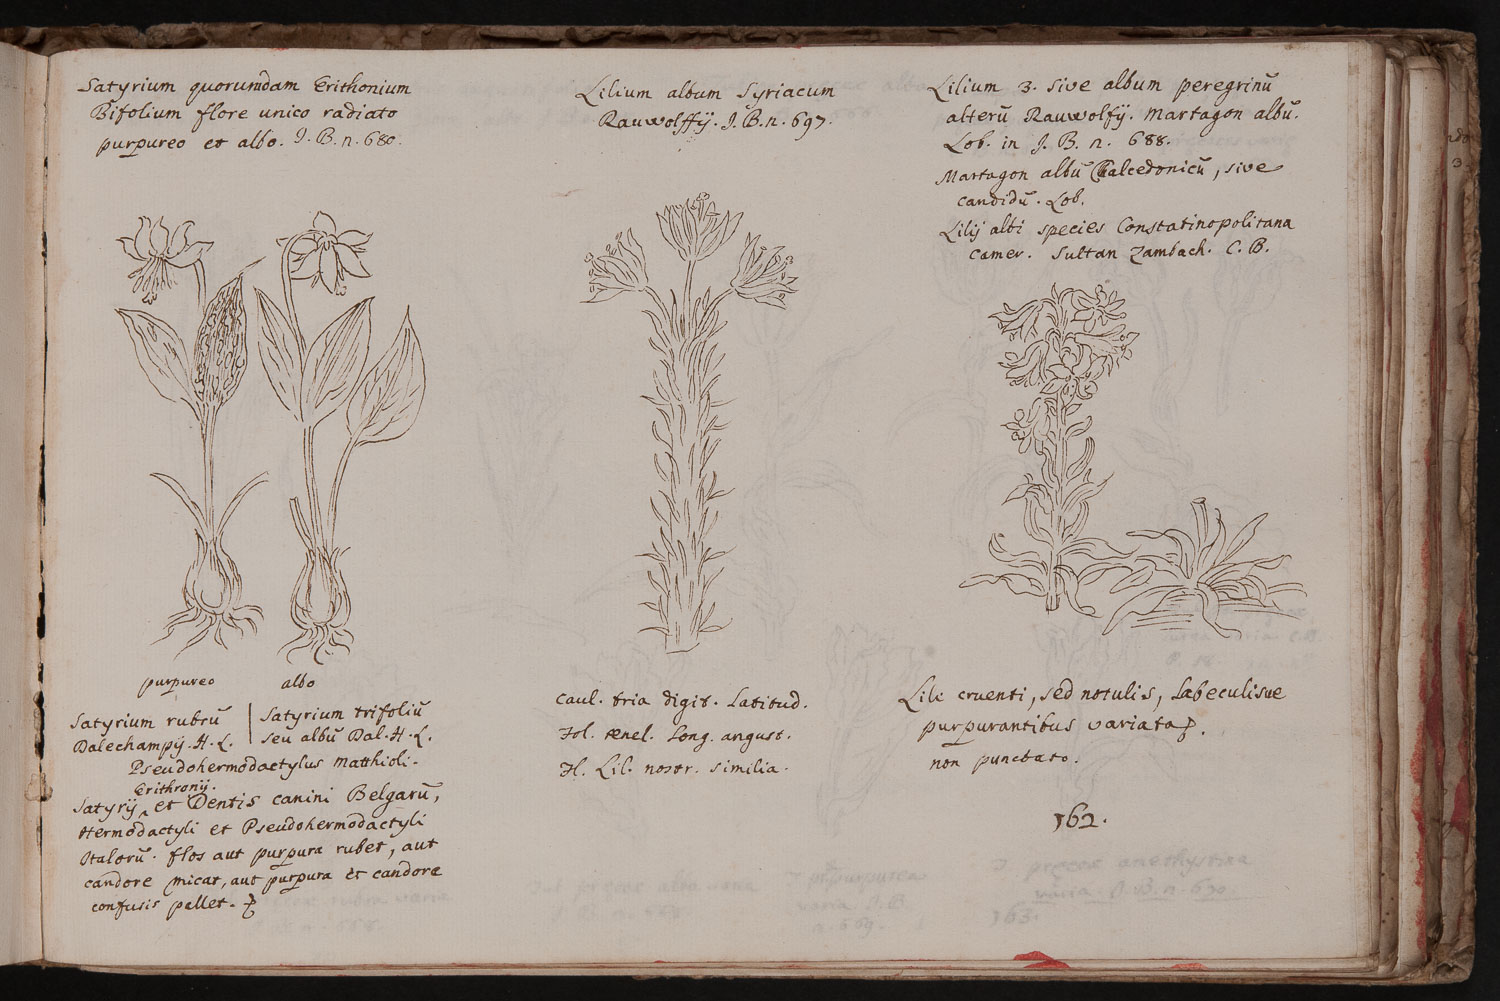 Satyrium quorumdam Erithonium
Bifolium flore unico radiato
purpureo et albo. J. B. n. 680.
purpureo albo
Satyrium rubrū
Dalechampij. H. L.
Satyrium trifoliū
seu albū Dal. H. L.
Pseudohermodactylus Matthioli.
Erithronij.
Satyrij et Dentis canini Belgarū,
Hermodactyli et Pseudohermodactyli
Italorū. flos aut purpura rubet, aut
candore micat, aut purpura et candore
confusis pallet.
Lilium album Syriacum
Rauwolffij. J. B. n. 697.
Caul. tria digit. Latitud.
Fol. tenel. Long. angust.
Fl. Lil. nostr. similia.
Lilium 3. sive album peregrinū
alterū Rauwolfij. Martagon albū.
Lob. in J. B. n. 688.
Martagon albū Chalcedonicū, sive
candidū. Lob.
Lilij albi species Constatinopolitana
Camer. Sultan Zambach. C. B.
Lili cruenti, sed notulis, Labeculisue
purpurantibus variata.
non punctato.
162.
163.